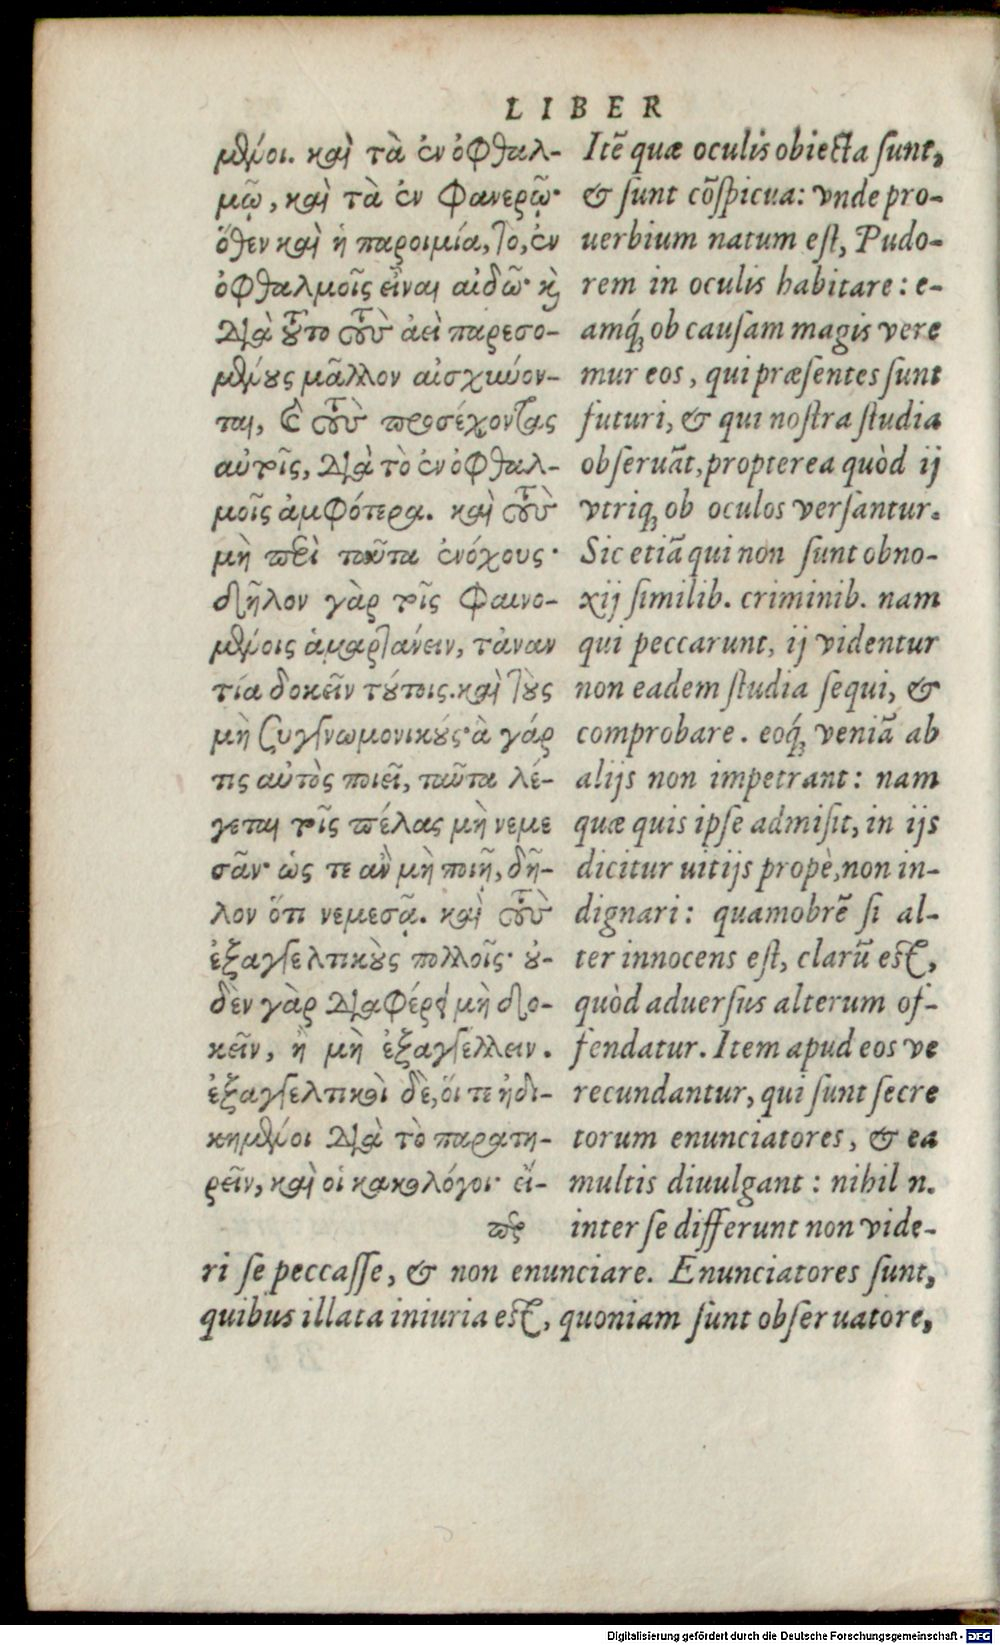 LIBER
μθμοι. καὶ τὰ ἐν ὀφθαλ-
μῷ, καὶ τὰ ἐν φανερῷ·
ὅθεν καὶ ἡ παροιμία, τὸ, ἐν
ὀφθαλμοῖς εἶναι αἰδῶ· καὶ
διὰ τοῦτο τοὺς ἀεὶ παρεσο-
μένους μᾶλλον αἰσχύνον-
ται, καὶ τοὺς προσέχοντας
αὐτοῖς, διὰ τὸ ἐν ὀφθαλ-
μοῖς ἀμφότερα. καὶ τοὺς
μὴ περὶ ταῦτα ἐνόχους·
δῆλον γὰρ τοῖς φαινο-
μένοις ἁμαρτάνειν, τἀναν
τία δοκεῖν τούτοις. καὶ τοὺς
μὴ συγγνωμονικούς· ἃ γάρ
τις αὐτὸς ποιεῖ, ταῦτα λέ-
γεται τοῖς πέλας μὴ νεμε
σᾶν· ὥς τε ἂν μὴ ποιῇ, δῆ-
λον ὅτι νεμεσᾷ. καὶ τοὺς
ἐξαγγελτικοὺς πολλοῖς· οὐ-
δὲν γὰρ διαφέρει μὴ δο-
κεῖν, ἢ μὴ ἐξαγγέλλειν.
ἐξαγγελτικοὶ δὲ, οἵ τε ἠδι-
κημένοι διὰ τὸ παρατη-
ρεῖν, καὶ οἱ κακολόγοι· εἴ-
περ
Itē quæ oculis obiecta sunt,
& sunt cōspicua: vnde pro-
uerbium natum est, Pudo-
rem in oculis habitare: e-
amq́; ob causam magis vere
mur eos, qui præsentes sunt
futuri, & qui nostra studia
obseruāt, propterea quòd ij
vtriq; ob oculos versantur.
Sic etiā qui non sunt obno-
xij similib. criminib. nam
qui peccarunt, ij videntur
non eadem studia sequi, &
comprobare. eoq́; veniā ab
alijs non impetrant: nam
quæ quis ipse admisit, in ijs
dicitur uitijs propè, non in-
dignari: quamobrē si al-
ter innocens est, clarū est,
quòd aduersus alterum of-
fendatur. Item apud eos ve
recundantur, qui sunt secre
torum enunciatores, & ea
multis diuulgant: nihil n.
inter se differunt non vide-
ri se peccasse, & non enunciare. Enunciatores sunt,
quibus illata iniuria est, quoniam sunt obseruatore,
Digitalisierung gefördert durch die Deutsche Forschungsgemeinschaft - DFG